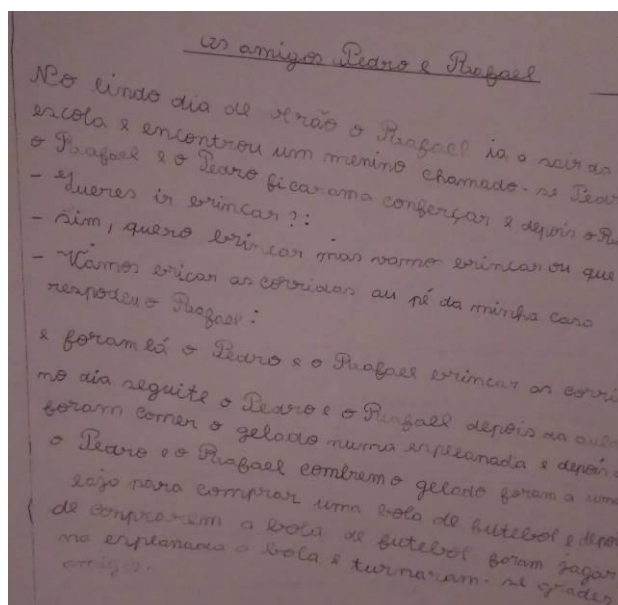 Os amigos Pedro e Rafael
No lindo dia de verão o Rafael ia a sair da
escola e encontrou um menino chamado-se Pedr
o Rafael e o Pedro ficarama conferçar e depois o Ra
- Queres ir brincar?:
- Sim, quero brincar mas vamo brincar ou que
- Vámos bricar as corridas au pé da minha casa
respodeu o Rafael:
e foram lá o Pedro e o Rafael brincar as corri
no dia seguite o Pedro e o Rafael depois da aula
foram comer o gelado numa esplanada e depois
o Pedro e o Rafael combrem o gelado foram a uma
loja para comprar uma bola de butebol e depoi
de comprarem a bola de futebol foram jagar
na esplanada a bola e turnaram-se grades
amigos.